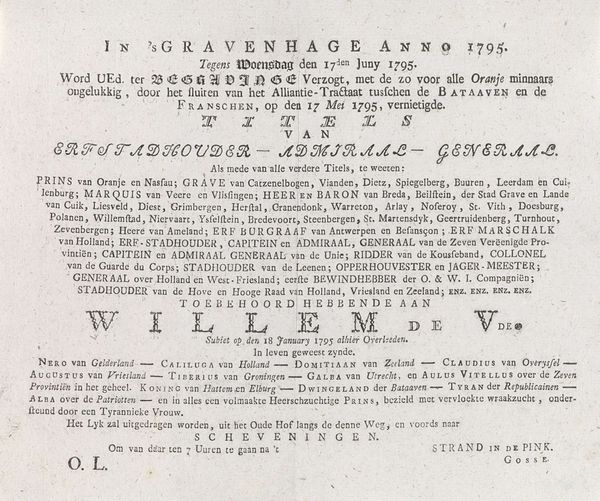 IN 'sGRAVENHAGE ANNO 1795.
Tegens Woensdag den 17den Juny 1795.
Word UEd. ter BEGRAAVINGE Verzogt, met de zo voor alle Oranje minnaars
ongelukkig, door het sluiten van het Alliantie-Tractaat tusschen de BATAAVEN en de
FRANSCHEN, op den 17 Mei 1795, vernietigde.
TITELS
VAN
ERFSTADHOUDER — ADMIRAAL — GENERAAL.
Als mede van alle verdere Titels, te weeten:
PRINS van Oranje en Nassau; GRAVE van Catzenelbogen, Vianden, Dietz, Spiegelberg, Buuren, Leerdam en Cui-
lenburg; MARQUIS van Veere en Vlissingen; HEER EN BARON van Breda, Beilstein, der Stad Grave en Lande
van Cuik, Liesveld, Diest, Grimbergen, Herstal, Granendonk, Warneton, Arlay, Noseroy, St. Vith, Doesburg,
Polanen, Willemstad, Niervaart, Ysselstein, Bredevoort, Steenbergen, St. Martensdyk, Geertruidenberg, Turnhout,
Zevenbergen; Heere van Ameland; ERF BURGRAAF van Antwerpen en Besançon; ERF MARSCHALK
van Holland; ERF-STADHOUDER, CAPITEIN en ADMIRAAL, GENERAAL van de Zeven Veréénigde Pro-
vintiën; CAPITEIN en ADMIRAAL GENERAAL van de Unie; RIDDER van de Kousseband, COLLONEL
van de Guarde du Corps; STADHOUDER van de Leenen; OPPERHOUVESTER en JAGER-MEESTER;
GENERAAL over Holland en West-Friesland; eerste BEWINDHEBBER der O. & W. I. Compagniën;
STADHOUDER van de Hove en Hooge Raad van Holland, Vriesland en Zeeland; ENZ. ENZ. ENZ. ENZ.
TOEBEHOORD HEBBENDE AAN
WILLEM DE VDE
Subiet op den 18 January 1795 alhier Overleeden.
In leven geweest zynde.
NERO van Gelderland — CALILUGA van Holland — DOMITIAAN van Zeeland — CLAUDIUS van Overyssel —
AUGUSTUS van Vriesland — TIBERIUS van Groningen — GALBA van Utrecht, en AULUS VITELLUS over de Zeven
Provintiën in het geheel. KONING van Hattem en Elburg — DWINGELAND der Bataaven — TYRAN der Republicainen —
ALBA over de Patriotten — en in alles een volmaakte Heerschzuchtige PRINS, bezield met vervloekte wraakzucht, onder-
steund door een Tyrannieke Vrouw.
Het Lyk zal uitgedragen worden, uit het Oude Hof langs de denne Weg, en voords naar
SCHEVENINGEN.
Om van daar ten 7 Uuren te gaan na 't STRAND IN DE PINK.
O. L. GOSSE.